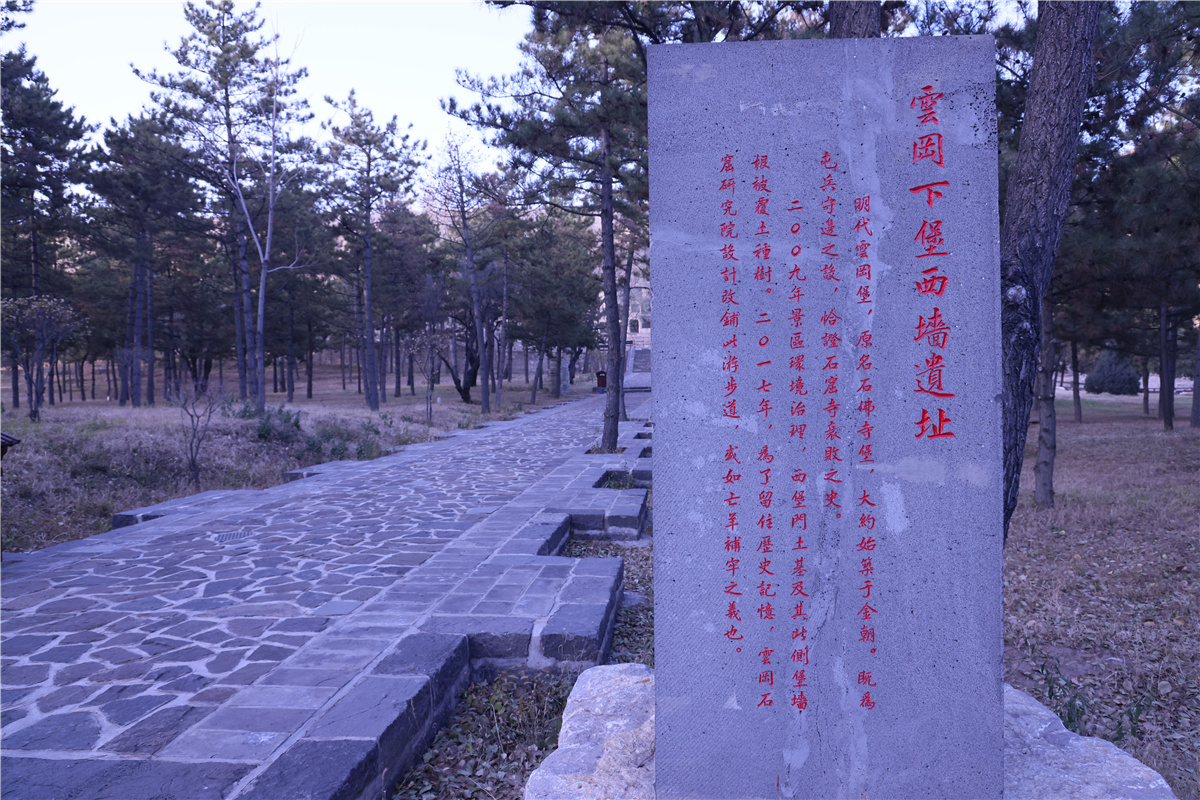 雲岡下堡西墻遺址
明代雲岡堡，原名石佛寺堡，大約始築于金朝。既為
屯兵守邊之故，恰證石窟寺衰敗之史。
二〇〇九年景區環境治理，西堡門土基及其北側堡墻
根被覆土種樹。二〇一七年，為了留住歷史記憶，雲岡石
窟研究院設計改鋪此游步道，或如亡羊補牢之義也。